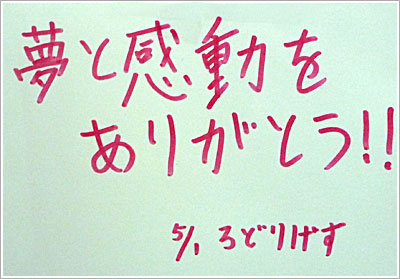 夢と感動を
ありがとう!!
5/1 ろどりげす